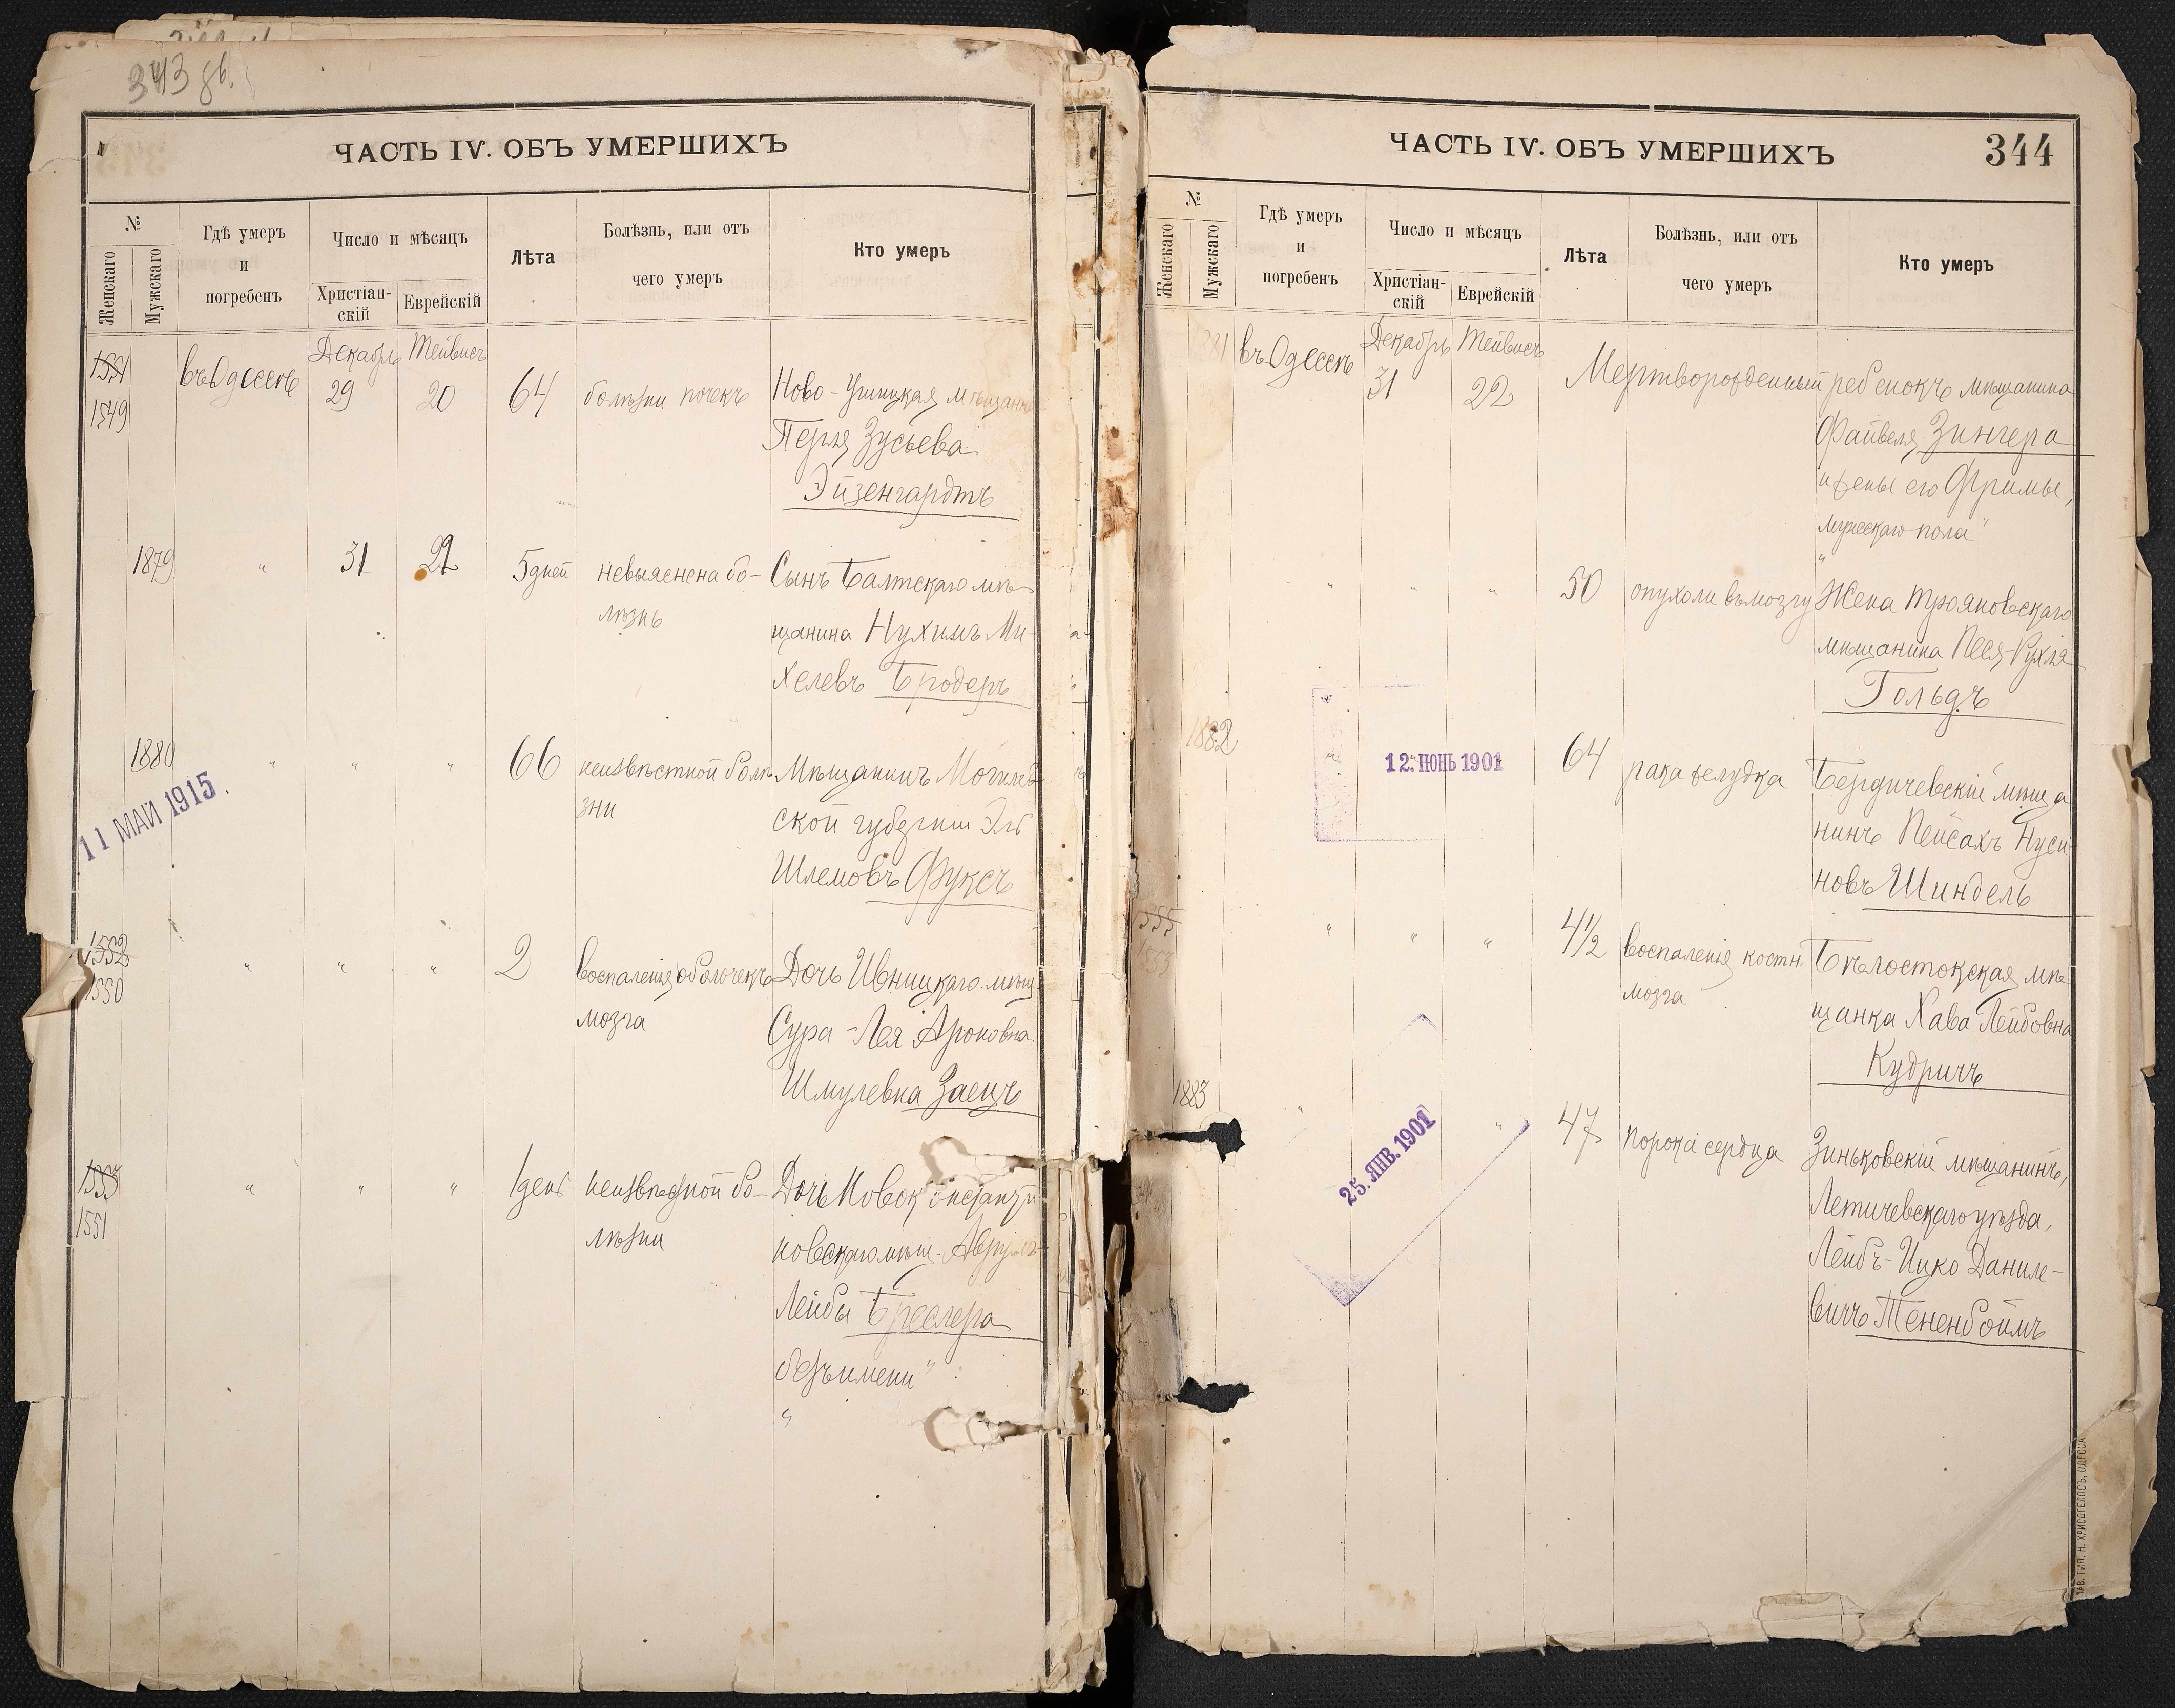 343 зв.
ЧАСТЬ IV. ОБЪ УМЕРШИХЪ
№
Женскаго
Мужскаго
Гдѣ умеръ
и
погребенъ
Число и мѣсяцъ
Христіан-
скій
Еврейскій
Лѣта
Болѣзнь, или отъ
чего умеръ
Кто умеръ
1551
1549
въ Одессѣ
Декабрь
29
Тейвисъ
20
64
болѣзни почекъ
Ново-Ушицкая мѣщанка
Перля Зусьева
Эйзенгардтъ
1879
"
31
22
5 дней
невыяснена бо-
лѣзнь
Сынъ Балтскаго мѣ-
щанина Нухимъ Ми-
хелевъ Бродеръ
1880
"
"
"
66
неизвѣстной болѣ-
зни
Мѣщанинъ Могилев-
ской губерніи Эль
Шлемовъ Фуксъ
11 МАЙ 1915.
1552
1550
"
"
"
2
воспаленія оболочекъ
мозга
Дочь Ивницкаго мѣщ.
Сура-Лея Ароновна
Шмулевна Заецъ
1553
1551
"
"
"
1 день
неизвѣстной бо-
лѣзни
Дочь Новоконстанти
новскаго мѣщ. Аврумъ-
Лейбы Бреслера
безъ имени"
"
ЧАСТЬ IV. ОБЪ УМЕРШИХЪ
344
№
Женскаго
Мужскаго
Гдѣ умеръ
и
погребенъ
Число и мѣсяцъ
Христіан-
скій
Еврейскій
Лѣта
Болѣзнь, или отъ
чего умеръ
Кто умеръ
въ Одессѣ
Декабрь
31
Тейвисъ
22
Мертворожденный ребенокъ мѣщанина
Файвеля Зингера
и жены его Фримы,
мужескаго пола"
"
"
"
"
50
опухоли въ мозгу
Жена Трояновскаго
мѣщанина Песя-Рухля
Гольдъ
1882
12. ІЮНЬ 1901
64
рака желудка
Бердичевскій мѣща
нинъ Пейсахъ Нуси
новъ Шиндель
1555
1553
"
"
"
4½
воспаленія костн.
мозга
Бѣлостокская мѣ
щанка Хава Лейбовна
Кудричъ
1883
"
"
25. ЯНВ. 1901
47
порока сердца
Зиньковскій мѣщанинъ,
Летичевскаго уѣзда,
Лейбъ-Ицко Даниле-
вичъ Тененбоймъ
ТИП. Н. ХРИСОГЕЛОСЪ, ОДЕССА